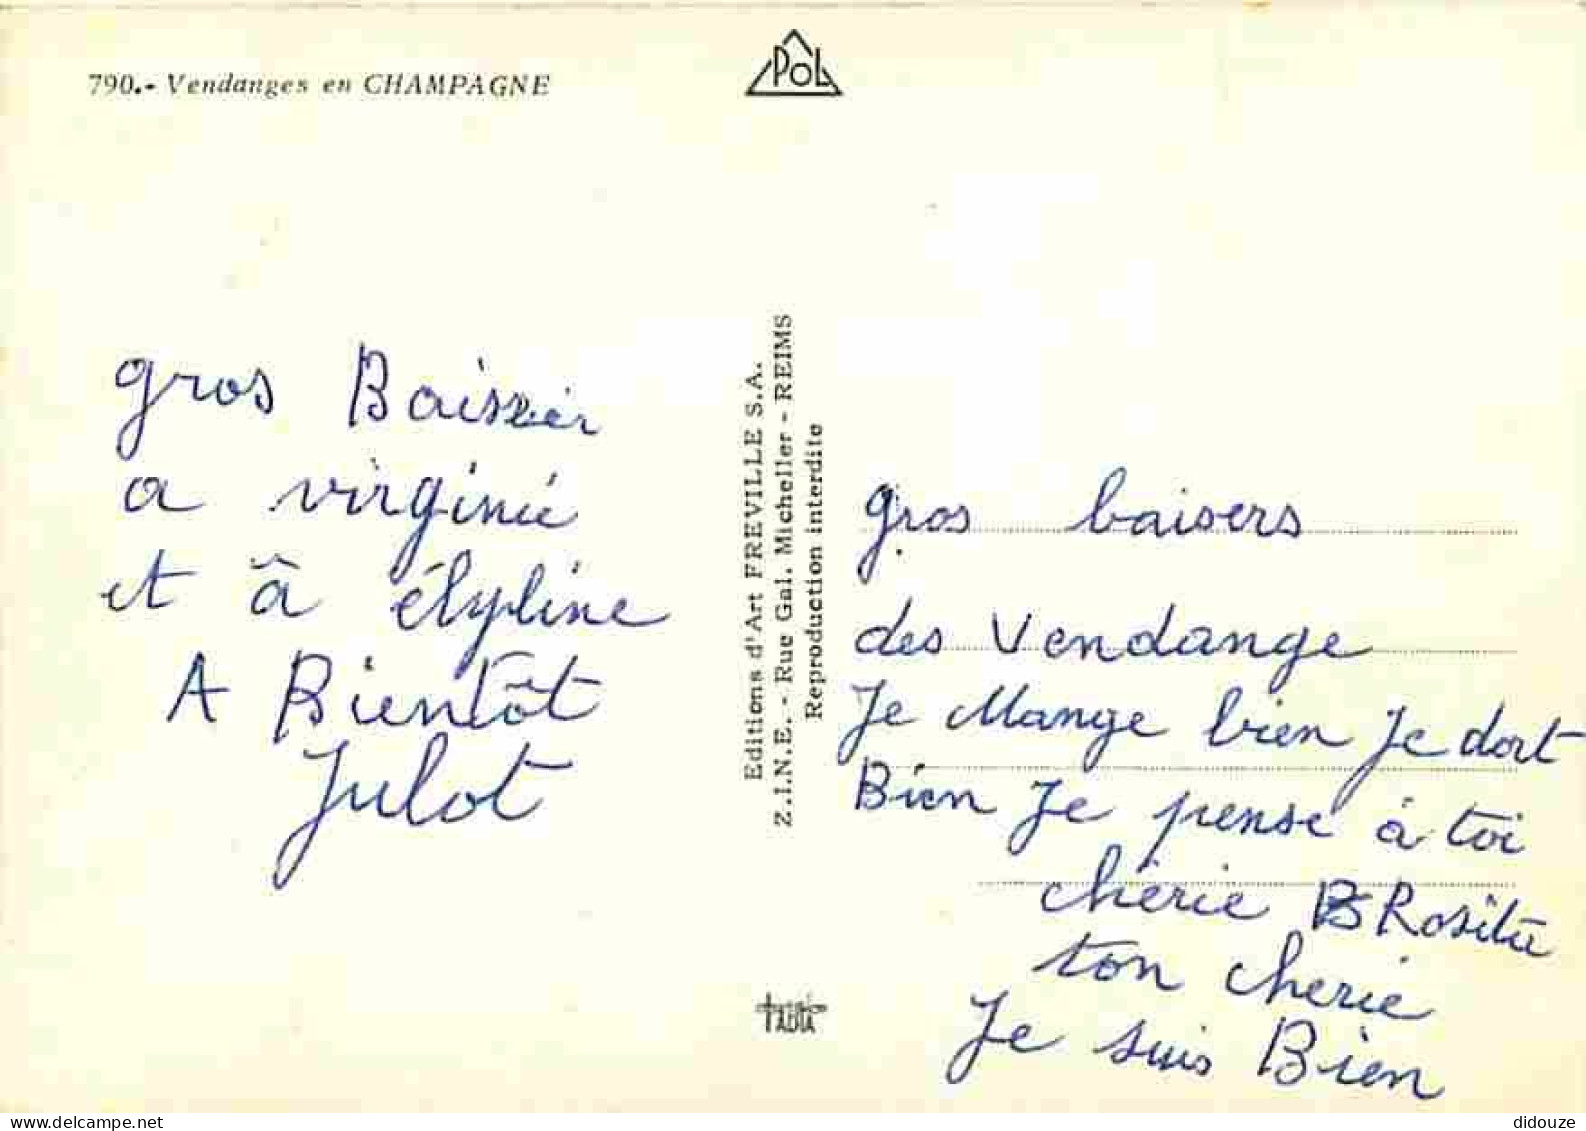 790.- Vendanges en CHAMPAGNE
POL
gros Baisser
a virginie
et â élyline
A Bientôt
Julot
Editions d'Art FREVILLE S.A.
Z.I.N.E. - Rue Gal. Micheller - REIMS
Reproduction interdite
gros baisers
des Vendange
Je Mange bien Je dort
Bien Je pense à toi
chérie Rosita
ton cherie
Je suis Bien
didouze